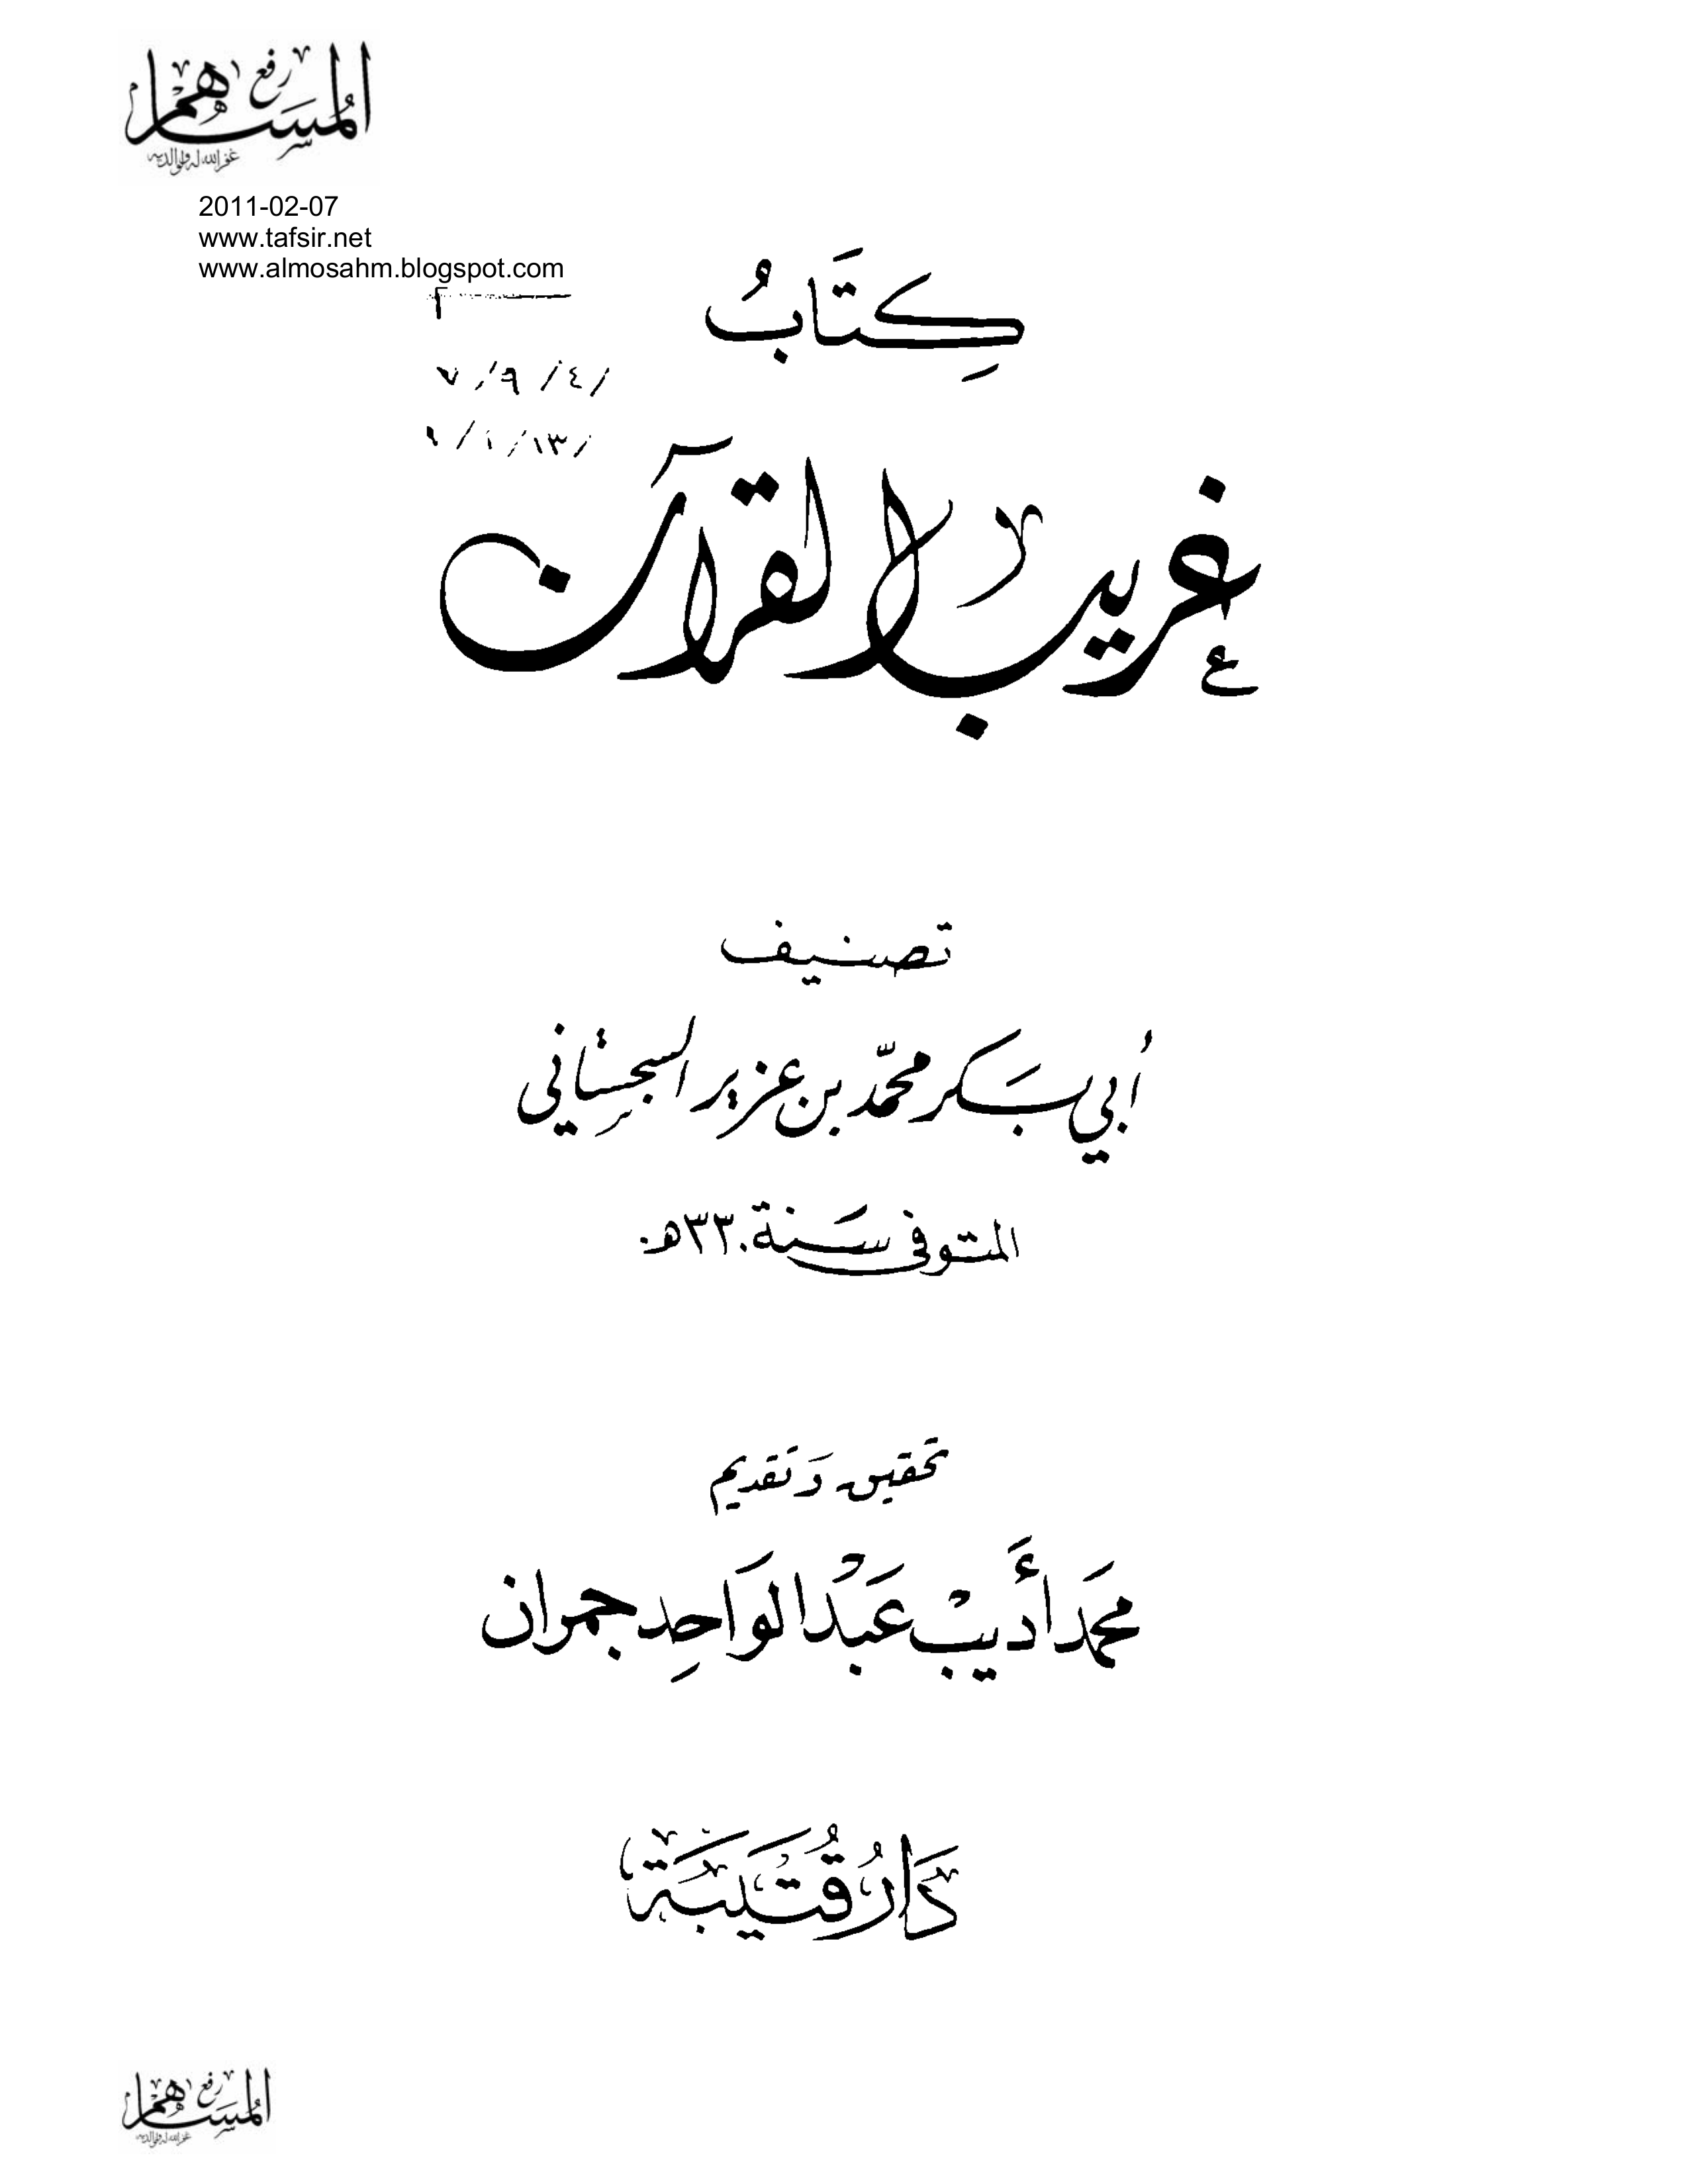 رفع
المساهم
غفر الله له ولوالديه
2011-02-07
www.tafsir.net
www.almosahm.blogspot.com
كِتَابُ
٧/٩/٤/
١/١/١٣/
غريب القرآن
تصنيف
أبي بَكر محمّد بن عزيز السجِستاني
المتوفى سَنة ٣٣٠هـ.
تحقيق وَتقديم
محمَد أَديبْ عَبْدالوَاحِد جمران
دَارُ قُتَيْبَة
رفع
المساهم
غفر الله له ولوالديه